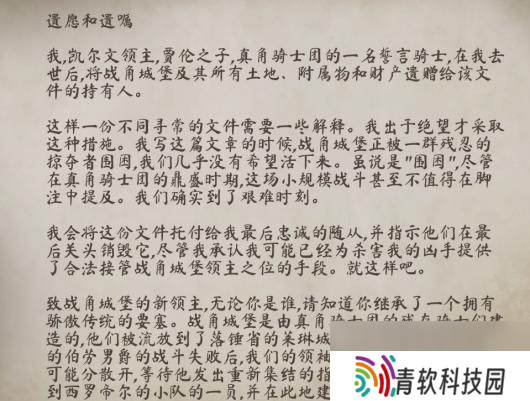 遗愿和遗嘱
我,凯尔文领主,贾伦之子,真角骑士团的一名誓言骑士,在我去
世后,将战角城堡及其所有土地、附属物和财产遗赠给该文
件的持有人。
这样一份不同寻常的文件需要一些解释。我出于绝望才采取
这种措施。我写这篇文章的时候,战角城堡正被一群残忍的
掠夺者围困,我们几乎没有希望活下来。虽说是"围困",尽管
在真角骑士团的鼎盛时期,这场小规模战斗甚至不值得在脚
注中提及。我们确实到了艰难时刻。
我会将这份文件托付给我最后忠诚的随从,并指示他们在最
后关头销毁它,尽管我承认我可能已经为杀害我的凶手提供
了合法接管战角城堡领主之位的手段。就这样吧。
致战角城堡的新领主,无论你是谁,请知道你继承了一个拥有
骄傲传统的要塞。战角城堡是由真角骑士团的残存骑士们建
造的,他们被流放到了落锤省的莱琳城
的伯劳男爵的战斗失败后,我们的领袖
可能分散开,等待他发出重新集结的指
到西罗帝尔的小队的一员,并在此地建
青软科技园